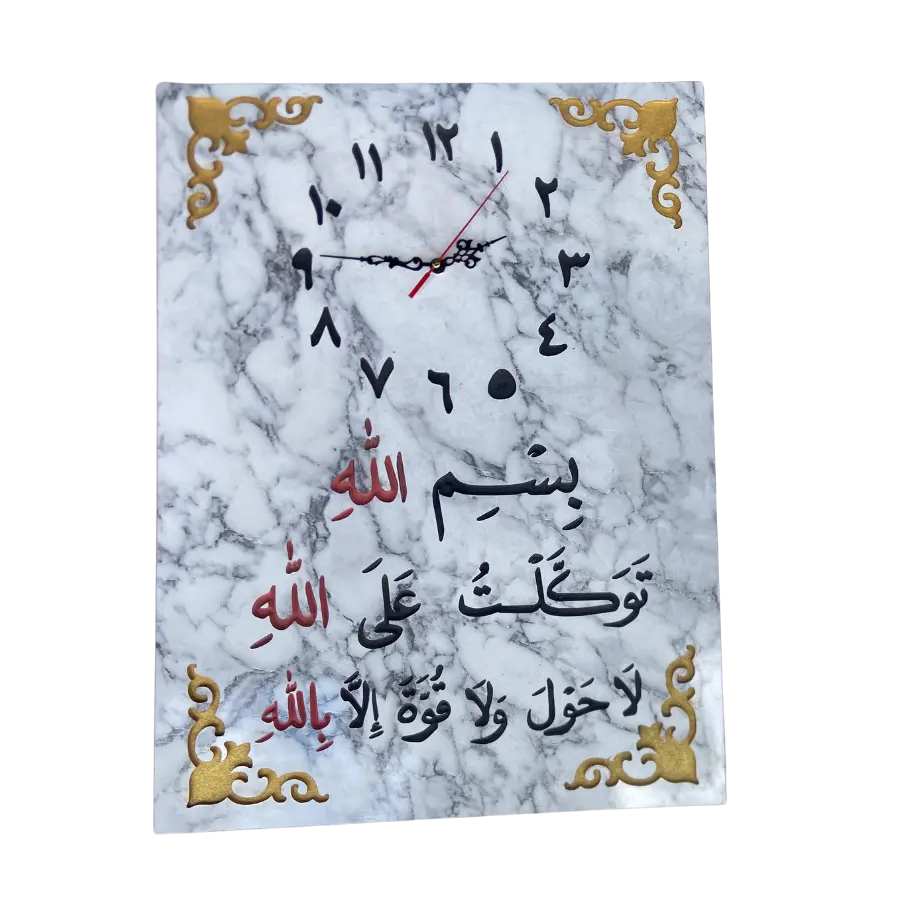 ١٢
١
٢
٣
٤
٥
٦
٧
٨
٩
١٠
١١
بِسْمِ اللّٰهِ
تَوَكَّلْتُ عَلَى اللّٰهِ
لَا حَوْلَ وَلَا قُوَّةَ إِلَّا بِاللّٰهِ